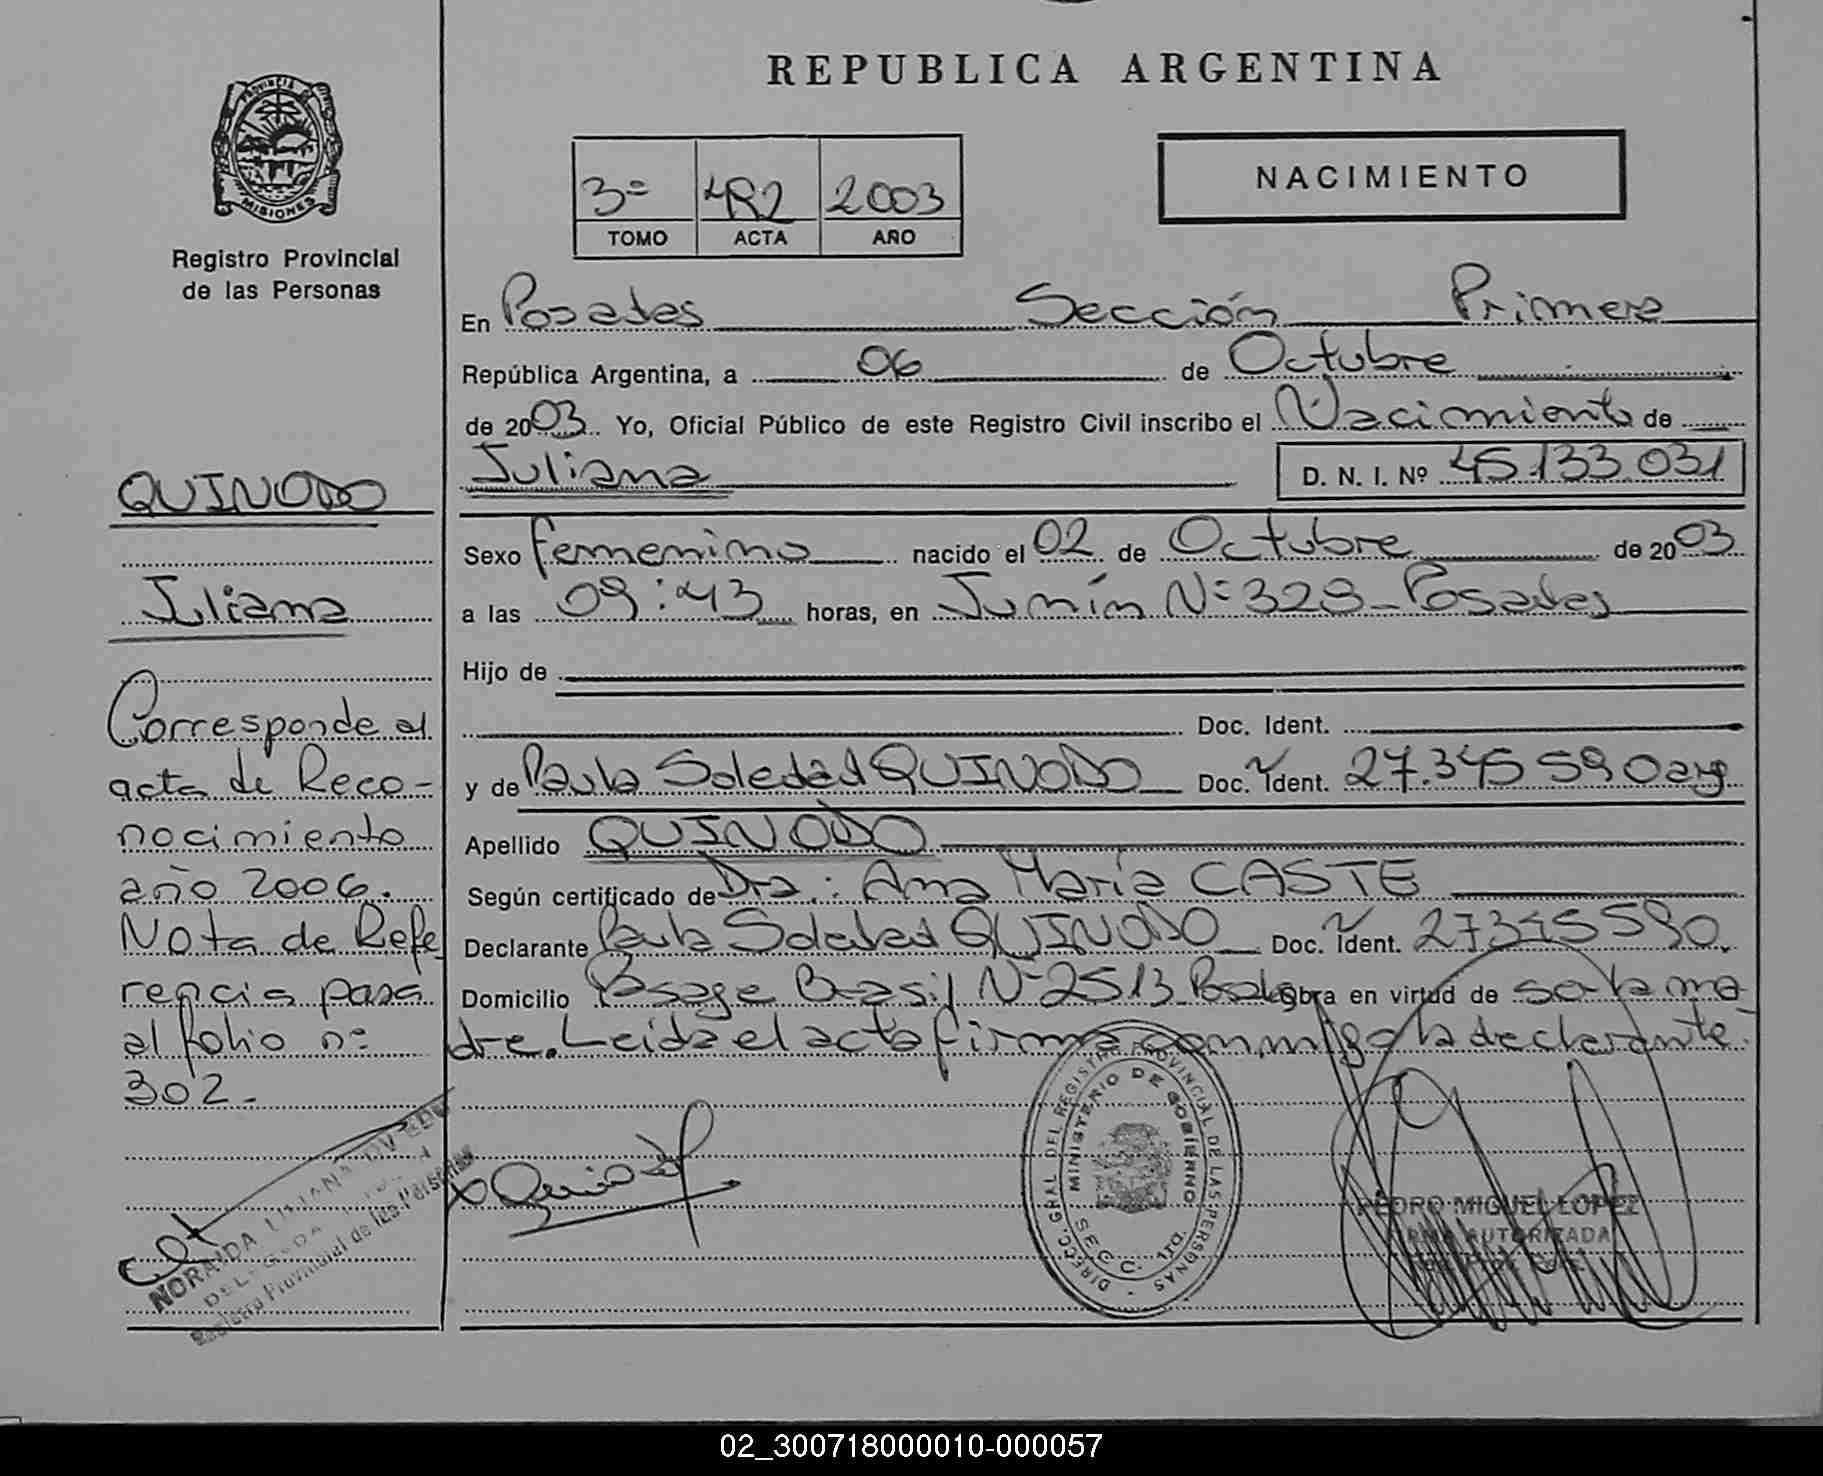 REPUBLICA ARGENTINA
PROVINCIA DE
MISIONES
Registro Provincial
de las Personas
3º 482 2003
TOMO ACTA AÑO
NACIMIENTO
En Posadas Sección Primera
República Argentina, a 06 de Octubre
de 2003. Yo, Oficial Público de este Registro Civil inscribo el Nacimiento de
Juliana D. N. I. Nº 45.133.031
Sexo femenino nacido el 02 de Octubre de 2003
a las 09:43 horas, en Junín Nº 329 - Posadas
Hijo de
Doc. Ident.
y de Paula Soledad QUINODO Doc. Ident. 27.345590 arg
Apellido QUINODO
Según certificado de Dra: Ana María CASTE
Declarante Paula Soledad QUINODO Doc. Ident. 27345590
Domicilio Pasage Brasil Nº 2513 Obra en virtud de ser la ma
dre. Leida el acta firma conmigo la declarante.
QUINODO
Juliana
Corresponde al
acta de Reco-
nocimiento
año 2006.
Nota de Refe
rencia pasa
al folio nº
302.
DIRECC. GRAL DEL REGISTRO PROVINCIAL DE LAS PERSONAS
MINISTERIO DE GOBIERNO
SECC. 1RA.
PEDRO MIGUEL LOPEZ
FIRMA AUTORIZADA
NORANDA LILIANA
DELEGADA
Registro Provincial de las Personas
02_300718000010-000057